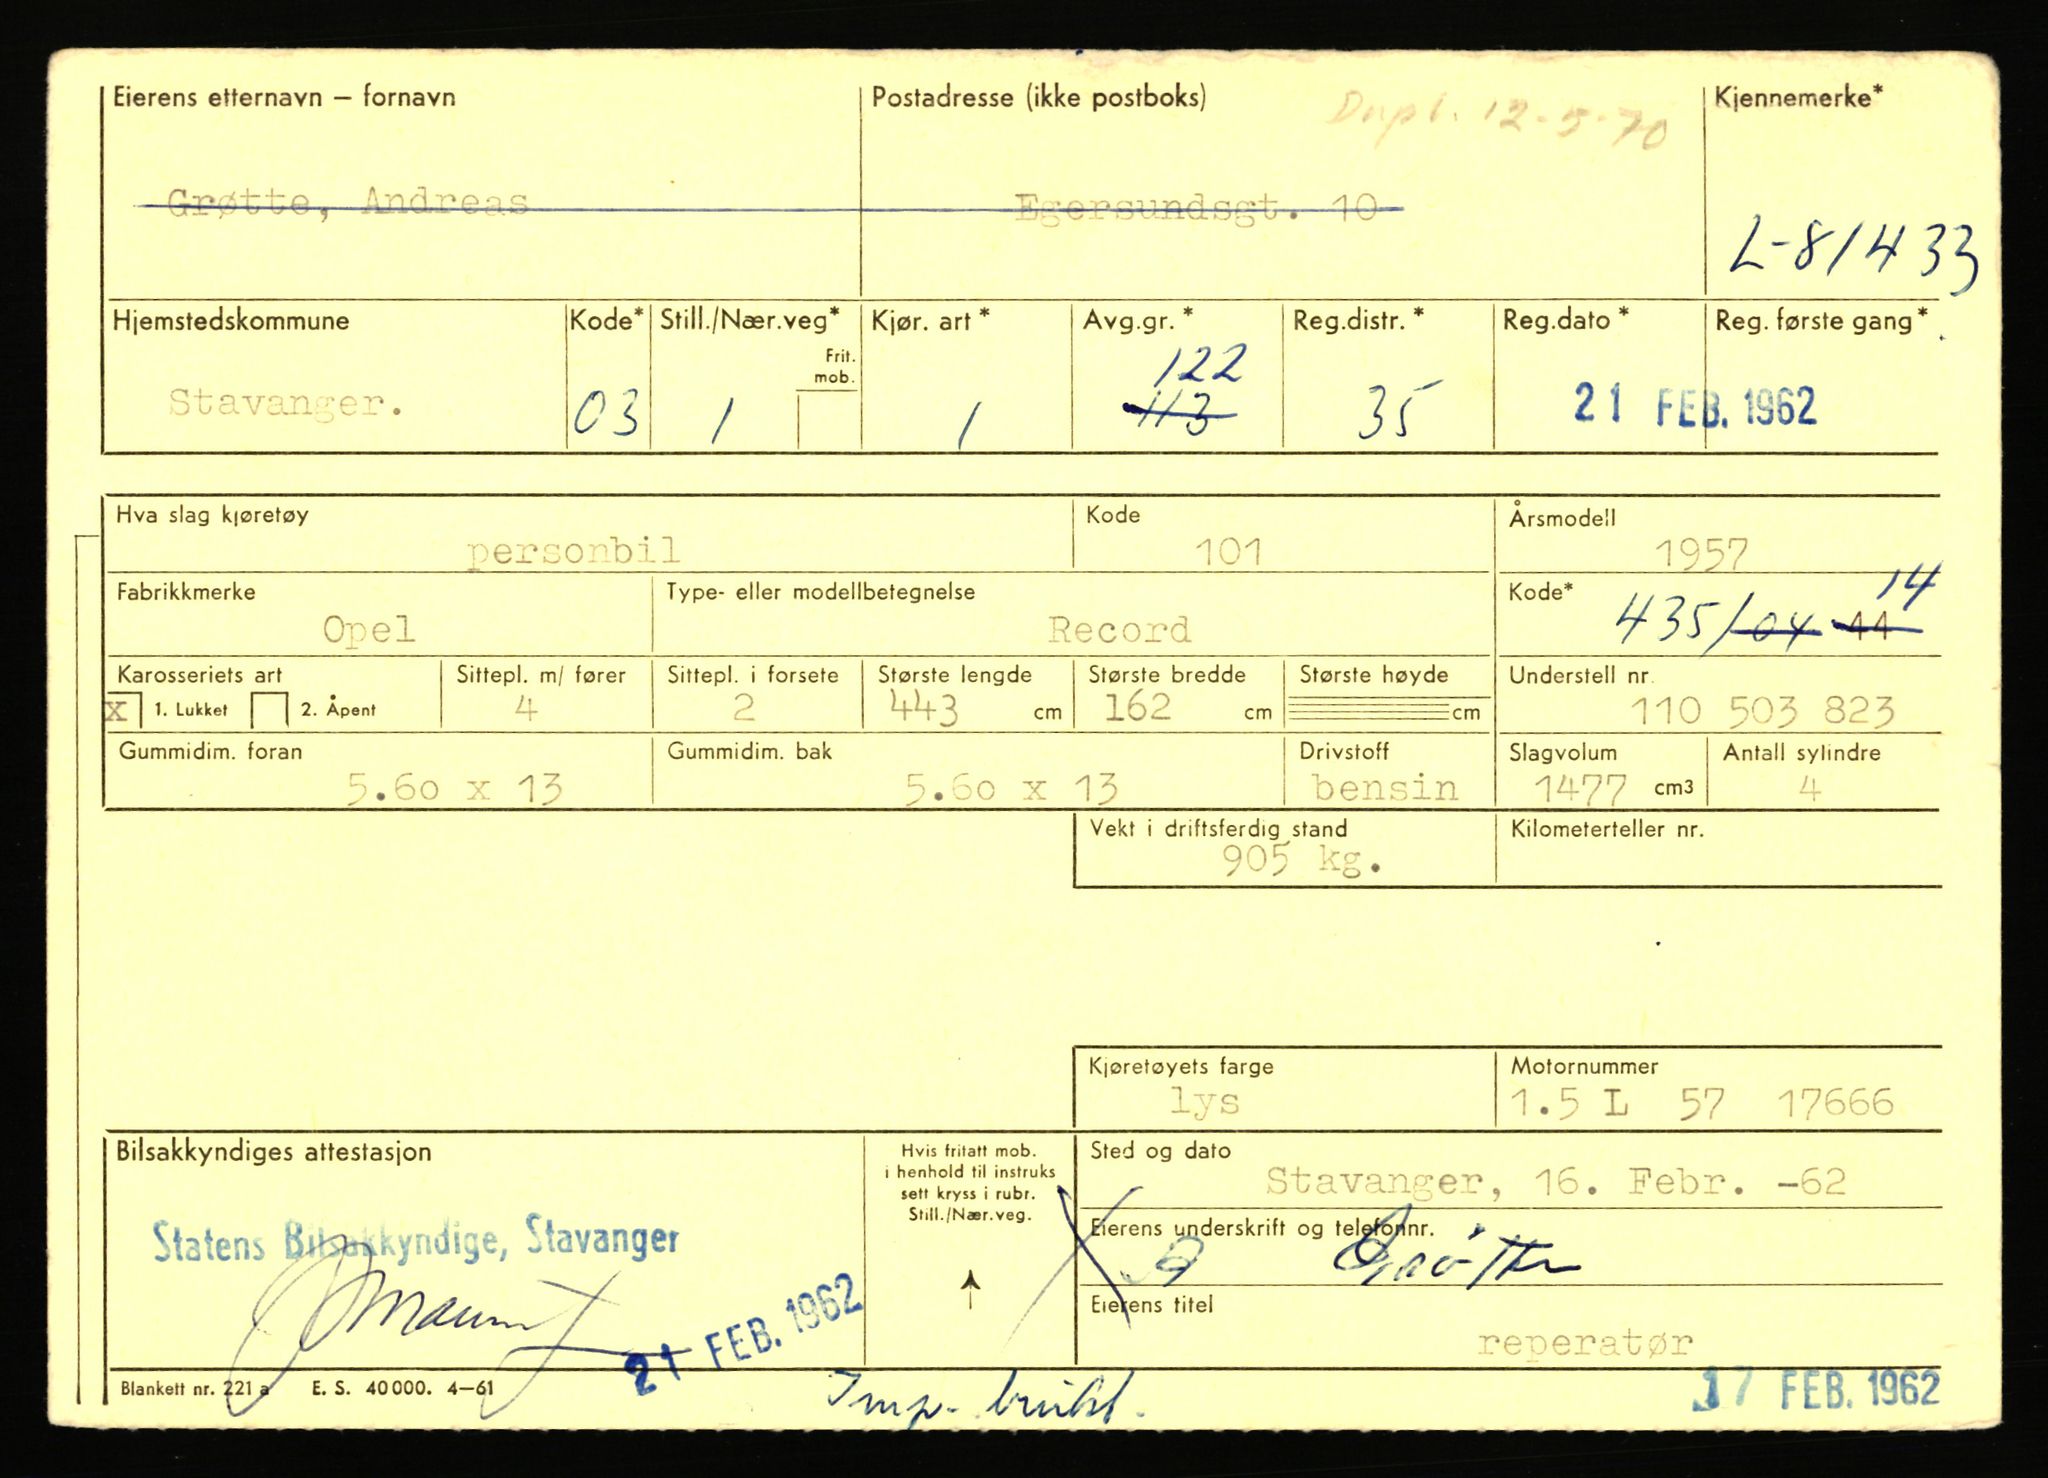 Eierens etternavn – fornavn Postadresse (ikke postboks) Dupl. 12-5-70 Kjennemerke*
Grøtte, Andreas Egersundsgt. 10
L-81433
Hjemstedskommune Kode* Still./Nær.veg* Kjør. art* Avg.gr.* Reg.distr.* Reg.dato* Reg. første gang*
Frit. mob. 122
Stavanger. 03 1 1 113 35 21 FEB. 1962
Hva slag kjøretøy Kode Årsmodell
personbil 101 1957
Fabrikkmerke Type- eller modellbetegnelse Kode* 14
Opel Record 435/04 44
Karosseriets art Sittepl. m/ fører Sittepl. i forsete Største lengde Største bredde Største høyde Understell nr.
X 1. Lukket 2. Åpent 4 2 443 cm 162 cm cm 110 503 823
Gummidim. foran Gummidim. bak Drivstoff Slagvolum Antall sylindre
5.60 x 13 5.60 x 13 bensin 1477 cm3 4
Vekt i driftsferdig stand Kilometerteller nr.
905 kg.
Kjøretøyets farge Motornummer
lys 1.5 L 57 17666
Bilsakkyndiges attestasjon
Hvis fritatt mob.
i henhold til instruks
sett kryss i rubr.
Still./Nær.veg.
Sted og dato
Stavanger, 16. Febr. -62
Statens Bilsakkyndige, Stavanger
21 FEB. 1962
Eierens underskrift og telefonnr.
A Grøtte
Eierens titel
reperatør
Blankett nr. 221 a E. S. 40000. 4–61 Imp. brukt. 17 FEB. 1962